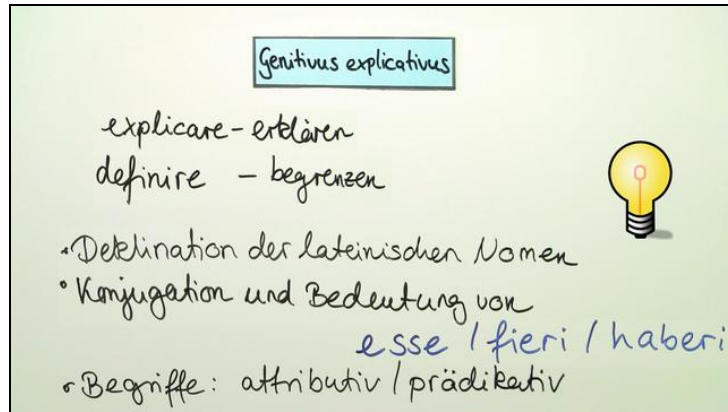 Genitivus explicativus
explicare - erklären
definire - begrenzen
• Deklination der lateinischen Nomen
• Konjugation und Bedeutung von
esse / fieri / haberi
• Begriffe: attributiv / prädikativ